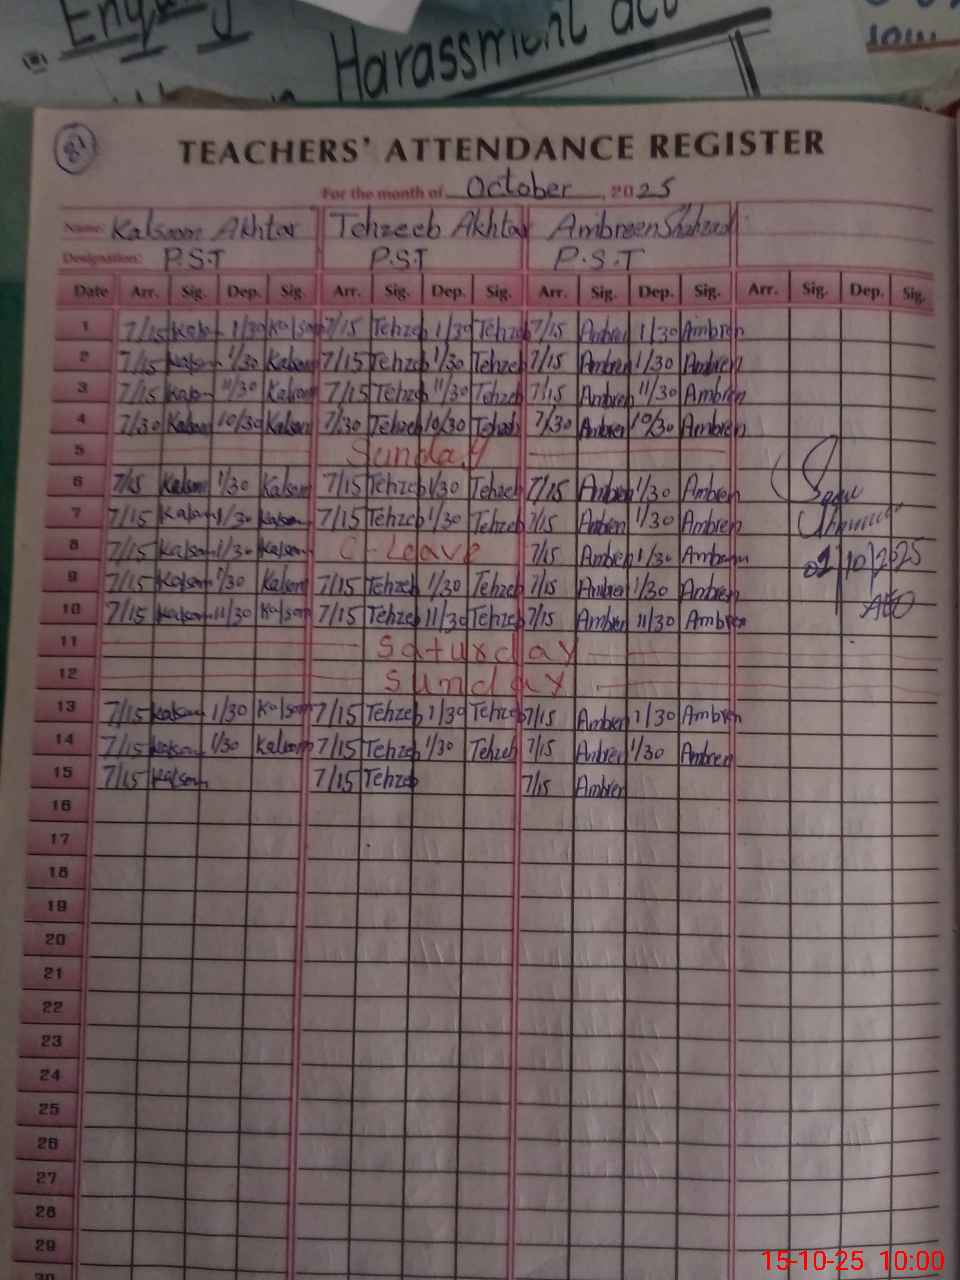 Harassment act
81
TEACHERS' ATTENDANCE REGISTER
For the month of October, 2025
Name: Kalsoom Akhtar Tehzeeb Akhtar Ambreen Shahzad
Designation: P.S.T P.S.T P.S.T
Date Arr. Sig. Dep. Sig. Arr. Sig. Dep. Sig. Arr. Sig. Dep. Sig. Arr. Sig. Dep. Sig.
1 7/15 Kalsom 1/30 Kalsom 7/15 Tehzeb 1/30 Tehzeb 7/15 Ambren 1/30 Ambren
2 7/15 Kalsom 1/30 Kalsom 7/15 Tehzeb 1/30 Tehzeb 7/15 Ambren 1/30 Ambren
3 7/15 Kalsom 11/30 Kalsom 7/15 Tehzeb 11/30 Tehzeb 7/15 Ambren 11/30 Ambren
4 7/30 Kalsom 10/30 Kalsom 7/30 Tehzeb 10/30 Tehzeb 7/30 Ambren 10/30 Ambren
5 Sunday
6 7/15 Kalsom 1/30 Kalsom 7/15 Tehzeb 1/30 Tehzeb 7/15 Ambren 1/30 Ambren
7 7/15 Kalsom 1/30 Kalsom 7/15 Tehzeb 1/30 Tehzeb 7/15 Ambren 1/30 Ambren
8 7/15 Kalsom 1/30 Kalsom C-Leave 7/15 Ambren 1/30 Ambren
10/2025
9 7/15 Kalsom 1/30 Kalsom 7/15 Tehzeb 1/30 Tehzeb 7/15 Ambren 1/30 Ambren
10 7/15 Kalsom 11/30 Kalsom 7/15 Tehzeb 11/30 Tehzeb 7/15 Ambren 11/30 Ambren
AEO
11 Saturday
12 Sunday
13 7/15 Kalsom 1/30 Kalsom 7/15 Tehzeb 1/30 Tehzeb 7/15 Ambren 1/30 Ambren
14 7/15 Kalsom 1/30 Kalsom 7/15 Tehzeb 1/30 Tehzeb 7/15 Ambren 1/30 Ambren
15 7/15 Kalsom 7/15 Tehzeb 7/15 Ambren
16
17
18
19
20
21
22
23
24
25
26
27
28
29
30
15-10-25 10:00